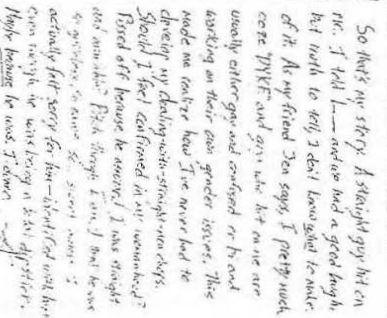 So that's my story. A straight guy hit on
me. I told L— and we had a good laugh,
but truth to tell, I don't know what to make
of it. As my friend Jen says, I pretty much
ooze "DYKE" and guys who hit on me are
usually either gay and confused or bi and
working on their own gender issues. This
made me realize how I've never had to
develop my dealing-with-straight-men chops.
Should I feel confirmed in my womanhood?
Pissed off because he assumed I was straight
and available?
actually felt sorry for him—identified with him
even though he was being a total dipstick.
Maybe because he was. I dunno.